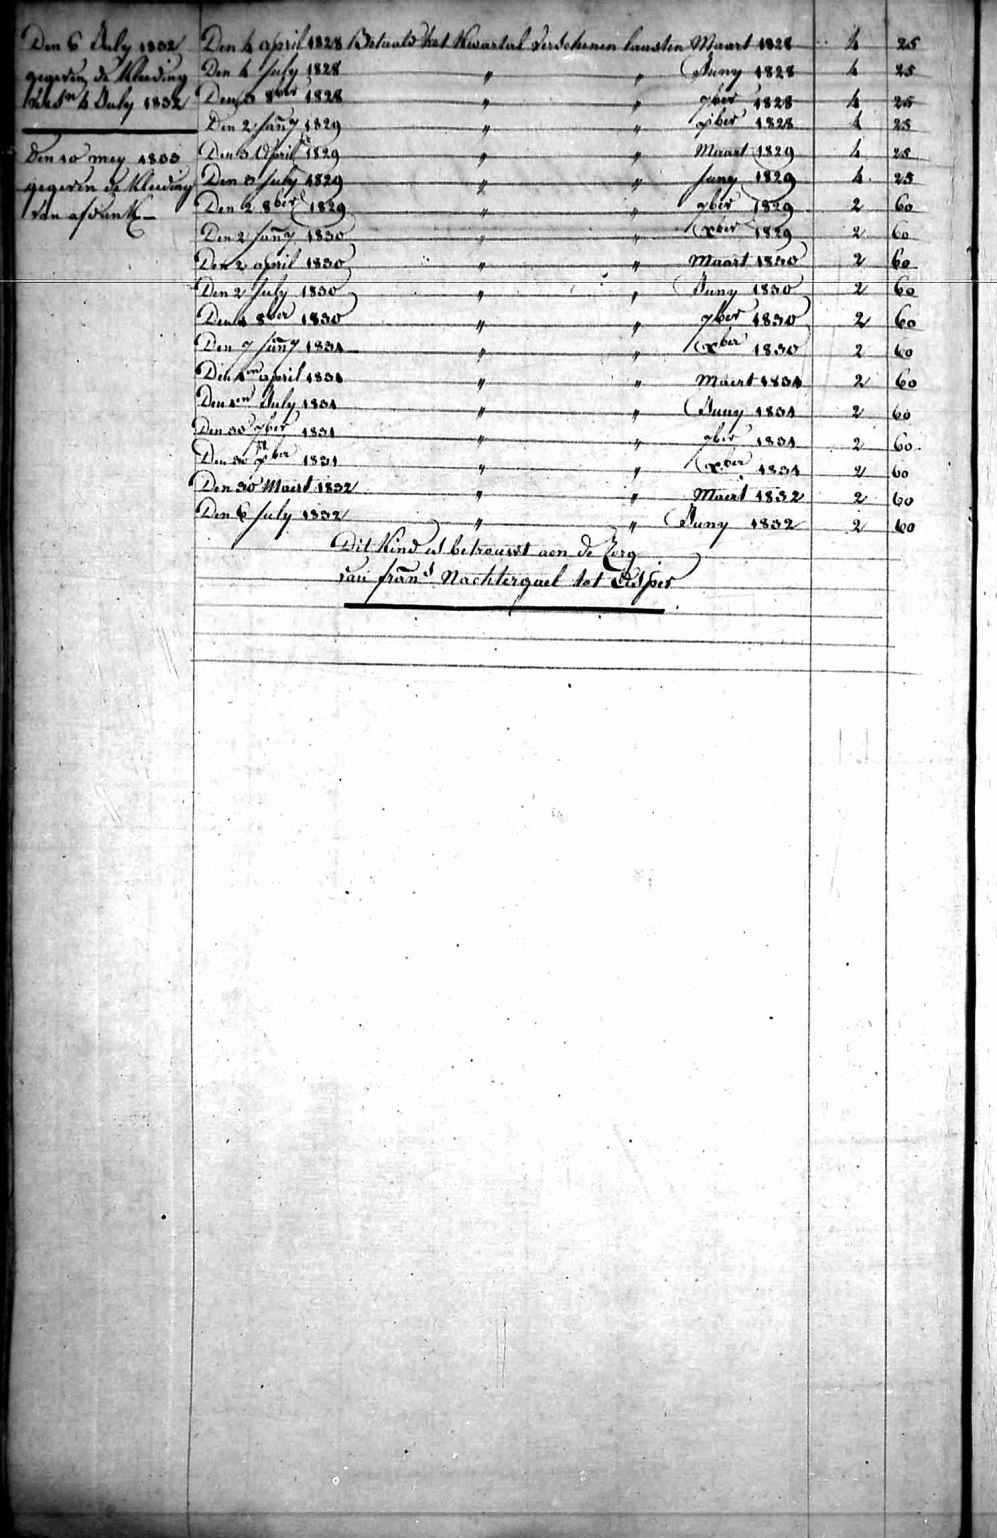 Den 6 July 1832
gegeven de Kleeding
4 July 1832
Den 10 mey 1833
gegeven de Kleeding
van afdank
Den 4 april 1828 Betaald het Kwartal verschenen laasten Maart 1828 4 25
Den 4 July 1828 " " Juny 1828 4 25
Den 3 8ber 1828 " " 7ber 1828 4 25
Den 2 Janry 1829 " " xber 1828 4 25
Den 3 April 1829 " " Maart 1829 4 25
Den 3 July 1829 " " Juny 1829 4 25
Den 2 8ber 1829 " " 7ber 1829 2 60
Den 2 Janry 1830 " " xber 1829 2 60
Den 2 april 1830 " " Maart 1830 2 60
Den 2 July 1830 " " Juny 1830 2 60
Den 1 8ber 1830 " " 7ber 1830 2 60
Den 7 Janry 1831 " " xber 1830 2 60
Den 1en april 1831 " " Maert 1831 2 60
Den 1en July 1831 " " Juny 1831 2 60
Den 30 7ber 1831 " " 7ber 1831 2 60
Den 30 xber 1831 " " xber 1831 2 60
Den 30 Maert 1832 " " Maert 1832 2 60
Den 6 July 1832 " " Juny 1832 2 60
Dit Kind is betrouwt aen de Zorg
van frans Nachtergael tot